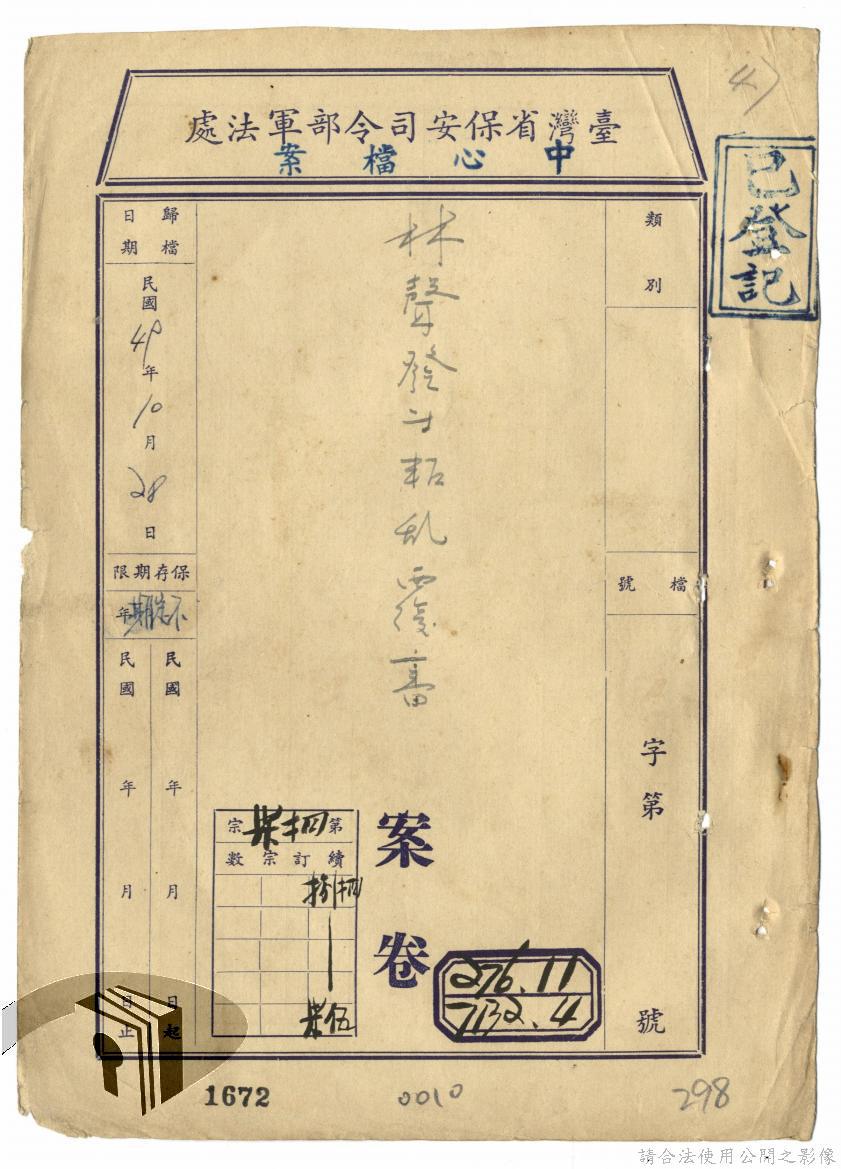 47
臺灣省保安司令部軍法處
中心檔案
已登記
類別
檔號
字第
號
林聲發等叛乱覆審
案卷
276.11
7132.4
第 宗
續訂宗數
歸檔日期
民國49年10月28日
保存期限
不定期年
民國 年 月 日起
民國 年 月 日止
1672
0010
298
請合法使用公開之影像